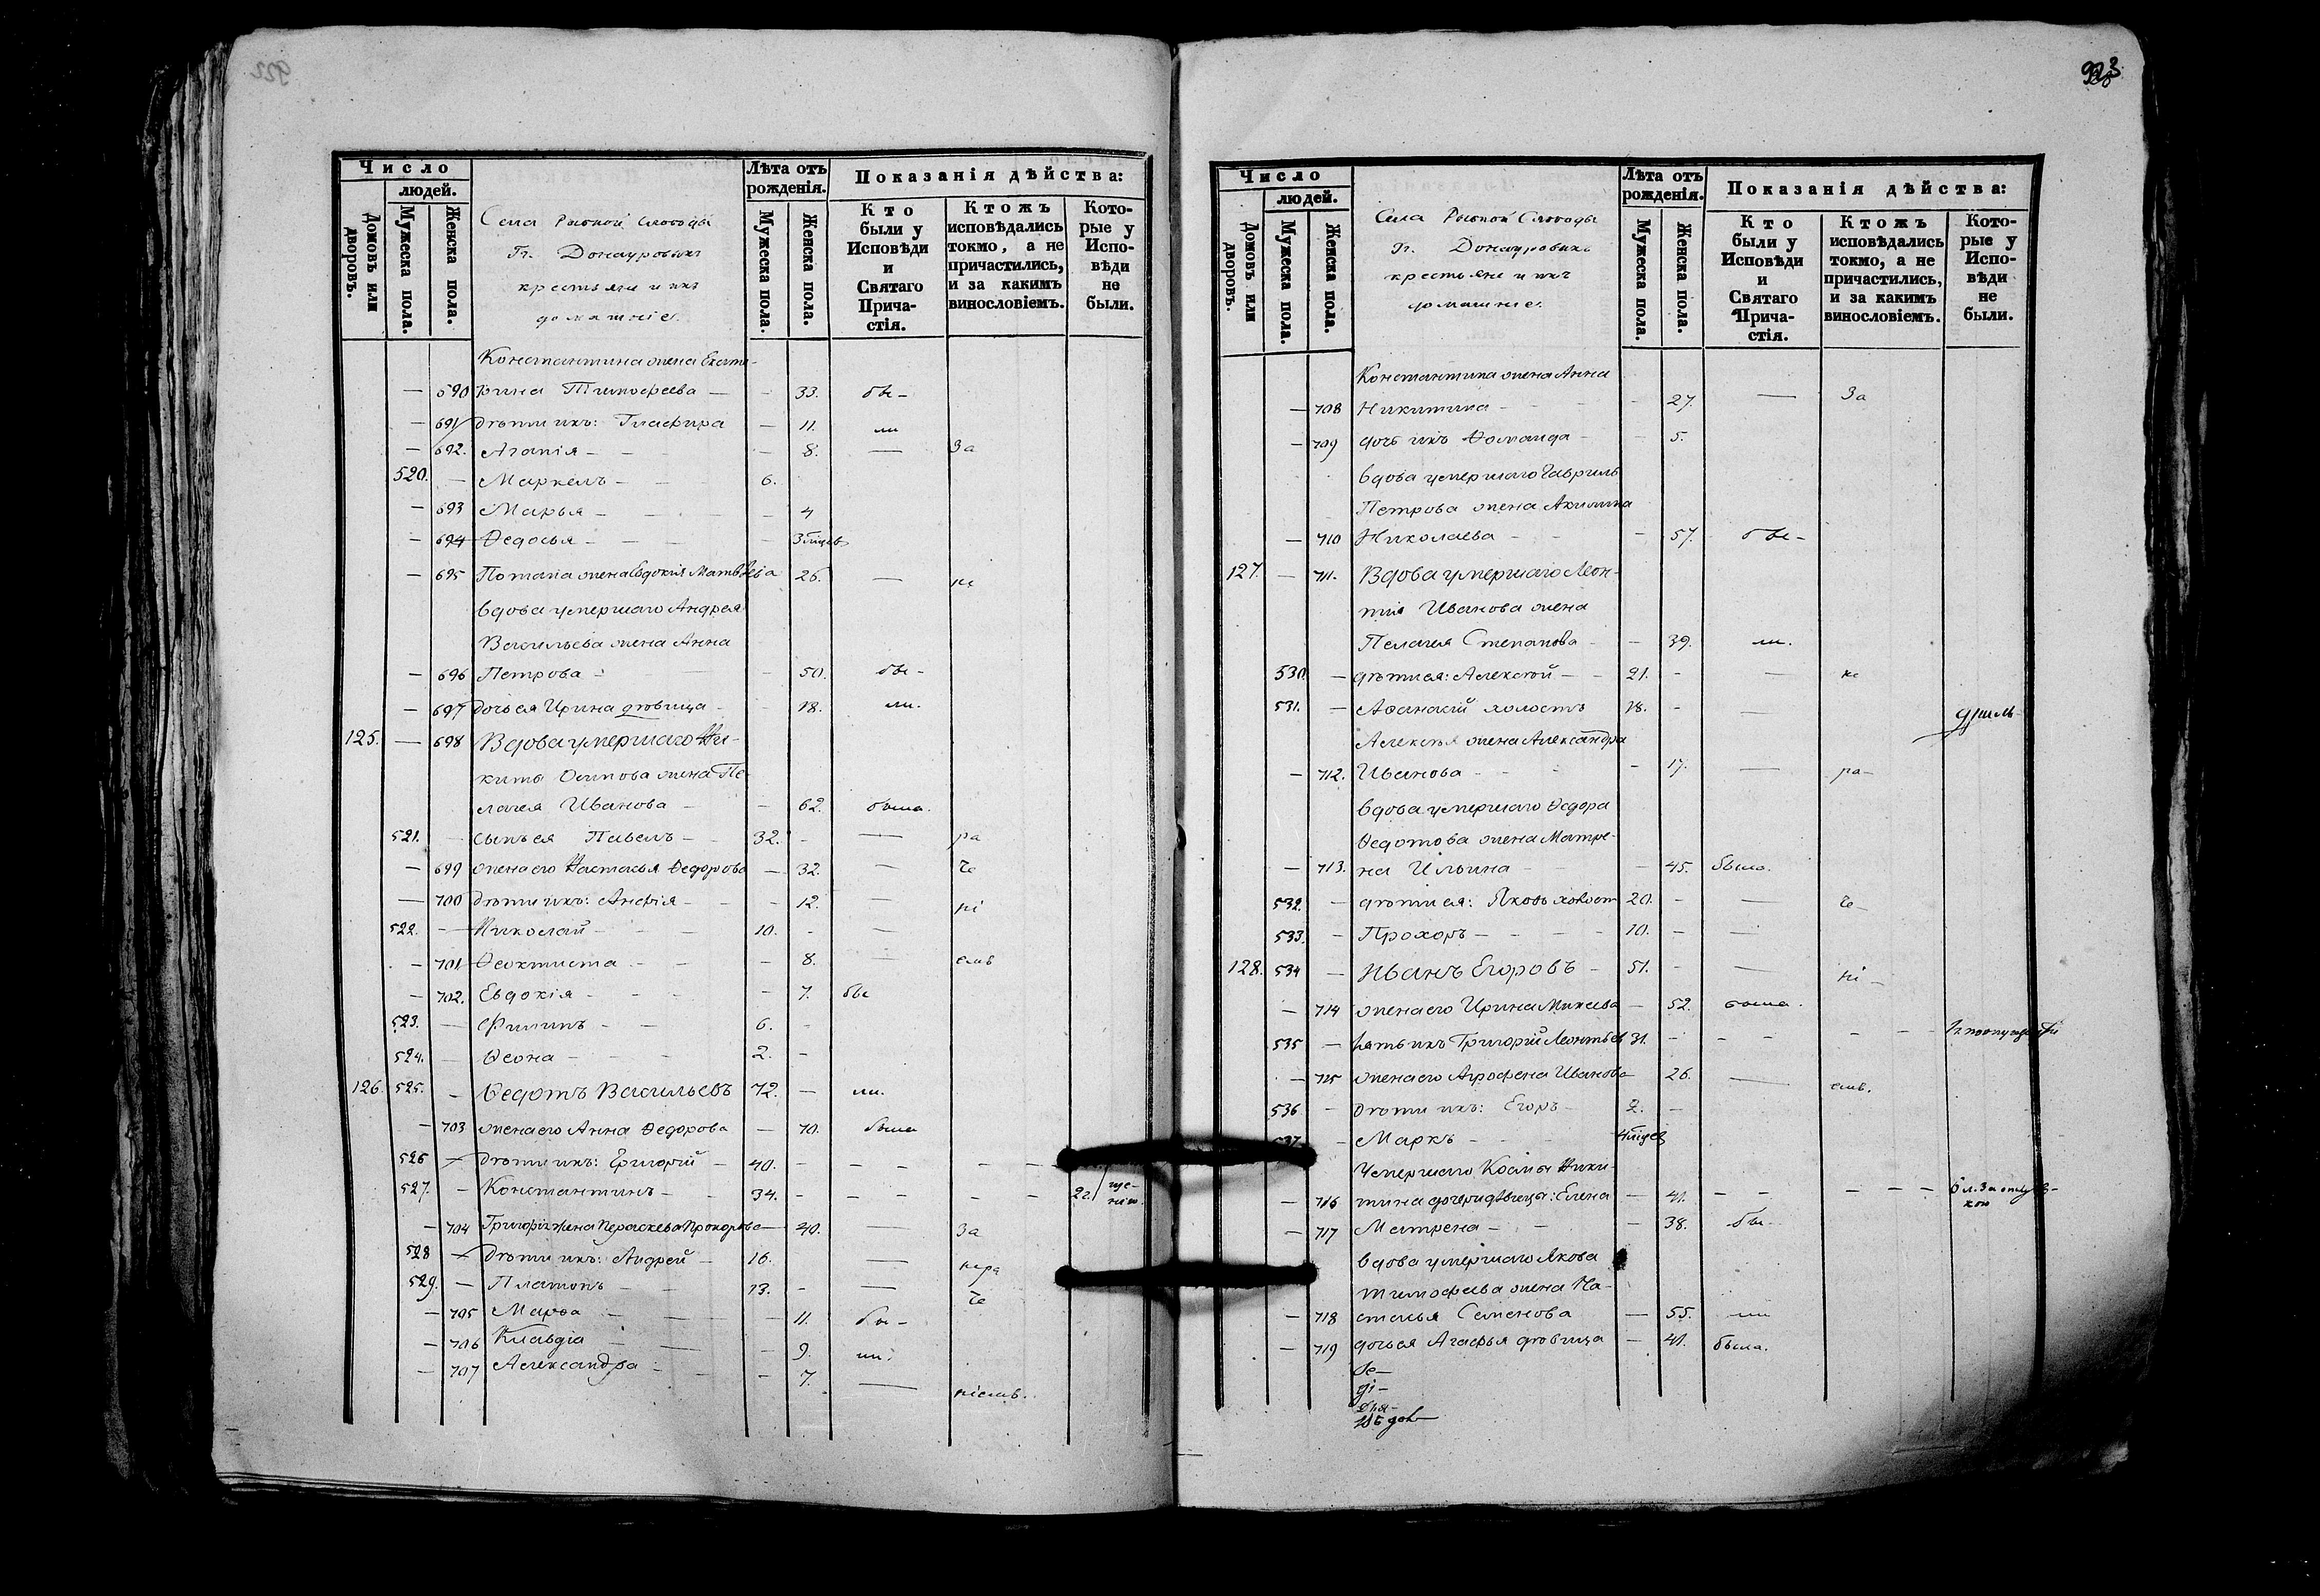 923
Число
людей.
Домовъ или дворовъ.
Мужеска пола.
Женска пола.
Села Рыбной Слободы
Гг. Донауровыхъ
крестьяне и ихъ
домашніе.
Лѣта отъ рожденія.
Мужеска пола.
Женска пола.
Показанія дѣйства:
Кто были у Исповѣди и Святаго Прича-стія.
Ктожъ исповѣдались токмо, а не причастились, и за какимъ винословіемъ.
Кото-рые у Испо-вѣди не были.
Константина жена Екате-
— 690 рина Тимофеева — - 33. бы-
— 691 дѣти ихъ: Глафира — 11. ли
— 692. Агапія - - - 8. — За
520. — Маркелъ - - 6.
— 693 Марья - - - 4
— 694 Ѳедосья - - -
— 695 Потапа жена Евдокія Матвѣева 26. —
вдова умершаго Андрея
Васильева жена Анна
— 696 Петрова - - 50. бы-
— 697 дочь ея Ирина дѣвица - - 18. ли.
125. — 698 Вдова умершаго Ни-
киты Осипова жена Пе-
лагея Иванова - - 62. была.
521. — сынъ ея Павелъ - 32. - — ра
— 699 жена его Настасья Ѳедорова — 32. — че
— 700 дѣти ихъ: Анфія - - 12. — ні
522. — Николай - - 10. - —
— 701 Ѳеоктиста - - - 8. — емъ
— 702. Евдокія - - - 7. бы
523. — Филипъ - - 6. -
524. — Ѳеона - - - 2. -
126. 525. - Ѳедотъ Васильевъ 72. — ли.
— 703 жена его Анна Ѳедорова — 70. была
526 - дѣти ихъ: Григорій - 40. - - - - -
527. - Константинъ - - 34. - - - - - 2 г.
— 704 Григорія жена Параскева Прохорова — 40. — За
528 - дѣти ихъ: Андрей - 16. —
529. - Платонъ - - 13. - — че
— 705 Марѳа - - - 11. бы-
— 706 Клавдіа - - 9. ли.
— 707 Александра - - - 7. — ніемъ.
Число
людей.
Домовъ или дворовъ.
Мужеска пола.
Женска пола.
Села Рыбной Слободы
Гг. Донауровыхъ
крестьяне и ихъ
домашніе.
Лѣта отъ рожденія.
Мужеска пола.
Женска пола.
Показанія дѣйства:
Кто были у Исповѣди и Святаго Прича-стія.
Ктожъ исповѣдались токмо, а не причастились, и за какимъ винословіемъ.
Кото-рые у Испо-вѣди не были.
Константина жена Анна
— 708 Никитина - - 27. — За
— 709 дочь ихъ Домнида - - 5.
вдова умершаго Гаврилы
Петрова жена Акилина
— 710 Николаева - - 57. бы-
127. — 711. Вдова умершаго Леон-
тія Иванова жена
Пелагея Степанова - - 39. ли.
530. — дѣти ея: Алексѣй - - 21. - —
531. — Аѳанасій холостъ 18. - —
Алексѣя жена Александра
— 712. Иванова - - - 17. — ра-
вдова умершаго Ѳедора
Ѳедотова жена Матре-
— 713. на Ильина - - 45. была.
532. - дѣти ея: Яковъ холост 20. - — че-
533. - Прохоръ - - - - 10. - —
128. 534 - Иванъ Егоровъ - 51. - — ні-
— 714 жена его Ирина Михеева — 52. была.
535 — зять ихъ Григорій Леонтьев 31. - - - - -
— 715 жена его Аграфена Иванова 26. — емъ.
536 - дѣти ихъ: Егоръ - 2. -
537. - Маркъ - -
Умершаго Космы Ники-
— 716 тина дочери дѣвицы: Елена — 41. - - - - -
— 717 Матрена - - - 38. бы-
вдова умершаго Якова
Тимофеева жена На-
— 718 стасья Семенова — 55. ли
— 719 дочь ея Агафья дѣвица — 41. была.